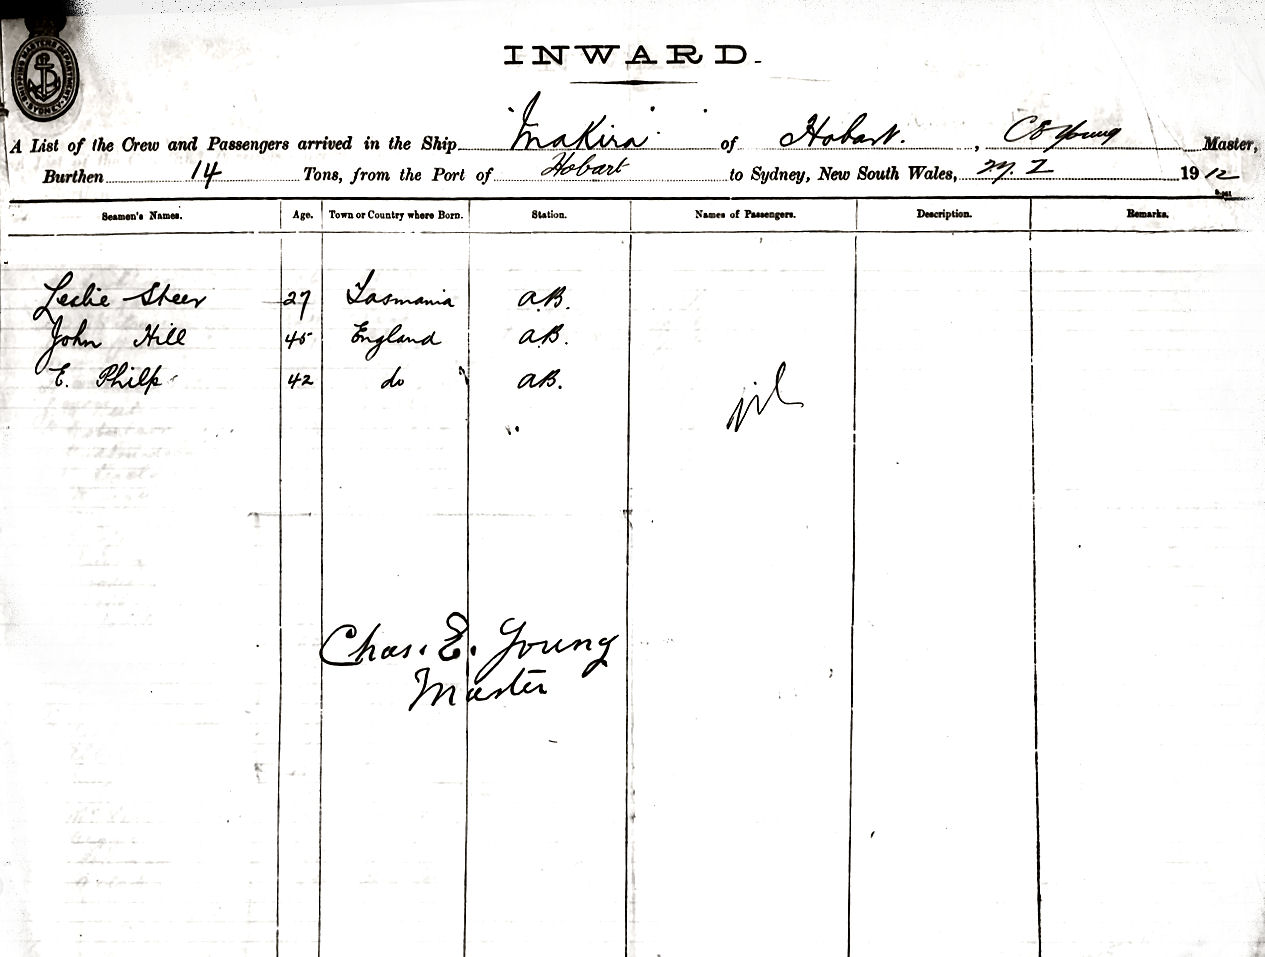 SHIPPING MASTERS DEPARTMENT SYDNEY
INWARD.
A List of the Crew and Passengers arrived in the Ship "Makira" of Hobart. , C E Young Master,
Burthen 14 Tons, from the Port of Hobart to Sydney, New South Wales, 1912
Seamen's Names. Age. Town or Country where Born. Station. Names of Passengers. Description. Remarks.
Leslie Steer 27 Tasmania A.B.
John Hill 45 England A.B.
E. Philp 42 do A.B.
nil
Chas. E. Young
Master